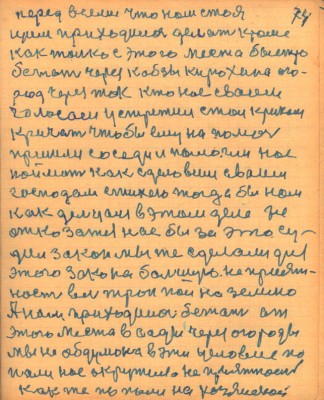 перед всеми что нам стоя 74
приходилося делат кроме
как толко с этого места быстро
бегат через кобзы кирохана ого-
род через ток кто нас своем
голосом устретил стои криком
кричат чтобы ему на помощ
пришли соседи и помогли нас
поймат как сдловили своим
господам тогда бы нам
как делцам в этом деле не
отказатся нас бы за это су-
дил закон мы же сделали для
этого закона болшую неприят-
ност вел трои пои на землю
А нам приходилос бегат от
этого места в сади через огороды
мы не обдумока в эти условие по
пали нас окружило неприятност
как же попали на хозяиской